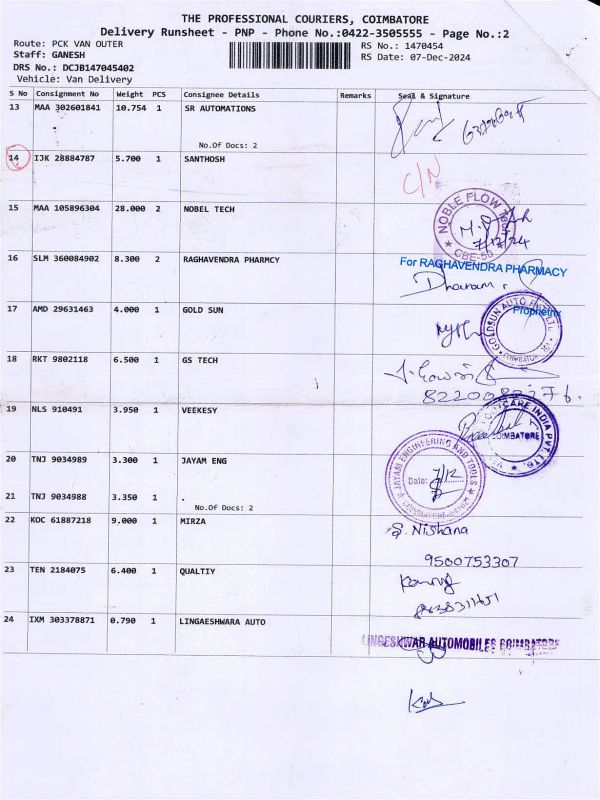 THE PROFESSIONAL COURIERS, COIMBATORE
Delivery Runsheet - PNP - Phone No.:0422-3505555 - Page No.:2
Route: PCK VAN OUTER
RS No.: 1470454
Staff: GANESH
RS Date: 07-Dec-2024
DRS No.: DCJB147045402
Vehicle: Van Delivery
S No Consignment No Weight PCS Consignee Details Remarks Seal & Signature
13 MAA 302601841 10.754 1 SR AUTOMATIONS
No.Of Docs: 2
14 IJK 28884787 5.700 1 SANTHOSH
C/N
15 MAA 105896304 28.000 2 NOBEL TECH
NOBLE FLOW
7/12/24
CBE-50
16 SLM 360084902 8.300 2 RAGHAVENDRA PHARMCY
For RAGHAVENDRA PHARMACY
Dharam
Proprietrix
17 AMD 29631463 4.000 1 GOLD SUN
GOLDSUN AUTO LTD.
COIMBATORE
18 RKT 9802118 6.500 1 GS TECH
19 NLS 910491 3.950 1 VEEKESY
CARE INDIA PVT. LTD.
COIMBATORE
20 TNJ 9034989 3.300 1 JAYAM ENG
JAYAM ENGINEERING AND TOOLS
Date: 7/12
21 TNJ 9034988 3.350 1 .
No.Of Docs: 2
22 KOC 61887218 9.000 1 MIRZA
S. Nishana
9500753307
23 TEN 2184075 6.400 1 QUALTIY
24 IXM 303378871 0.790 1 LINGAESHWARA AUTO
LINGESHWAR AUTOMOBILES COIMBATORE